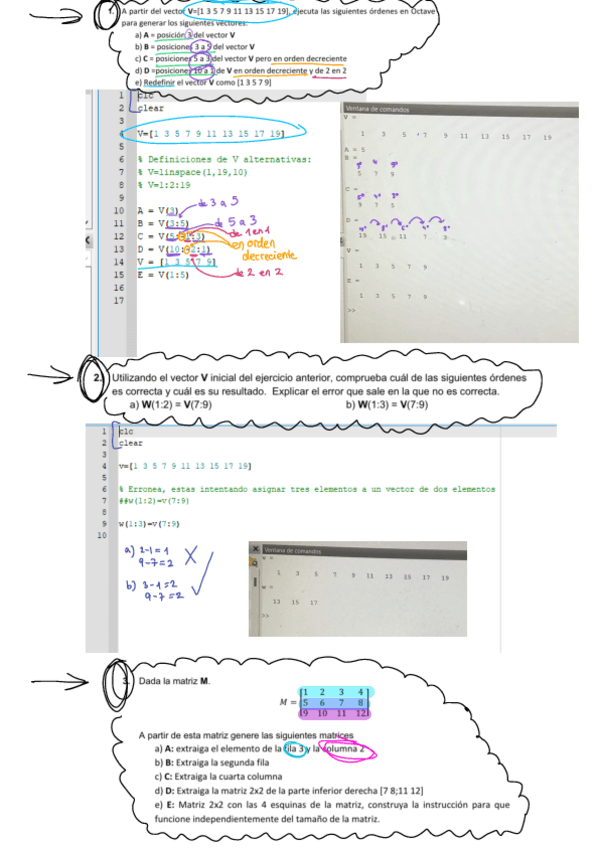 1. A partir del vector V=[1 3 5 7 9 11 13 15 17 19], ejecuta las siguientes órdenes en Octave
para generar los siguientes vectores:
a) A = posición 3 del vector V
b) B = posiciones 3 a 5 del vector V
c) C = posiciones 5 a 3 del vector V pero en orden decreciente
d) D = posiciones 10 a 1 de V en orden decreciente y de 2 en 2
e) Redefinir el vector V como [1 3 5 7 9]
1 clc
2 clear
3
4 V=[1 3 5 7 9 11 13 15 17 19]
5
6 % Definiciones de V alternativas:
7 % V=linspace(1,19,10)
8 % V=1:2:19
9
10 A = V(3)
de 3 a 5
11 B = V(3:5)
de 5 a 3
12 C = V(5:-1:3)
de 1 en 1
en orden
decreciente
13 D = V(10:-2:1)
14 V = [1 3 5 7 9]
de 2 en 2
15 E = V(1:5)
16
17
Ventana de comandos
V =
1 3 5 7 9 11 13 15 17 19
A = 5
B =
5 7 9
C =
9 7 5
D =
15 11 7 3
V =
1 3 5 7 9
E =
1 3 5 7 9
>>
2. Utilizando el vector V inicial del ejercicio anterior, comprueba cuál de las siguientes órdenes
es correcta y cuál es su resultado. Explicar el error que sale en la que no es correcta.
a) W(1:2) = V(7:9) b) W(1:3) = V(7:9)
1 clc
2 clear
3
4 v=[1 3 5 7 9 11 13 15 17 19]
5
6 % Erronea, estas intentando asignar tres elementos a un vector de dos elementos
7 ##w(1:2)=v(7:9)
8
9 w(1:3)=v(7:9)
10
a) 2-1=1
9-7=2
b) 3-1=2
9-7=2
Ventana de comandos
v =
1 3 5 7 9 11 13 15 17 19
w =
13 15 17
>>
3. Dada la matriz M.
1 2 3 4
M = 5 6 7 8
9 10 11 12
A partir de esta matriz genere las siguientes matrices
a) A: extraiga el elemento de la fila 3 y la columna 2
b) B: Extraiga la segunda fila
c) C: Extraiga la cuarta columna
d) D: Extraiga la matriz 2x2 de la parte inferior derecha [7 8;11 12]
e) E: Matriz 2x2 con las 4 esquinas de la matriz, construya la instrucción para que
funcione independientemente del tamaño de la matriz.